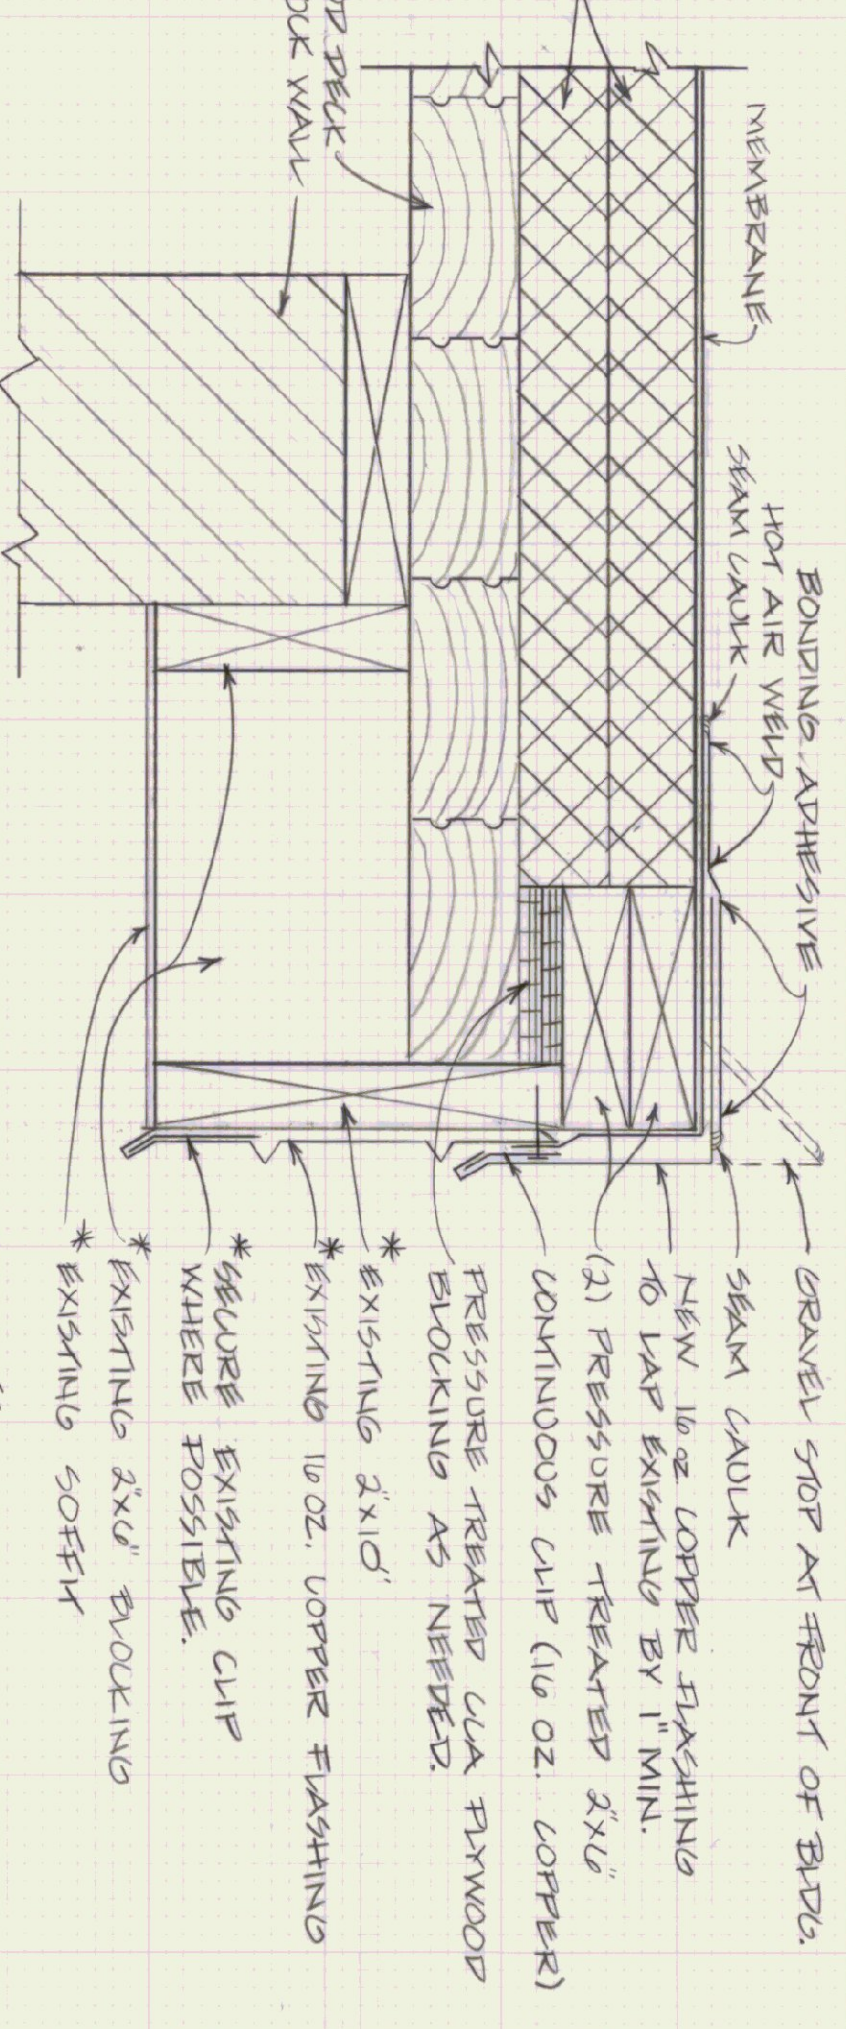 MEMBRANE
SEAM CAULK
HOT AIR WELD
BONDING ADHESIVE
DECK
WALL
GRAVEL STOP AT FRONT OF BLDG.
SEAM CAULK
NEW 16 OZ COPPER FLASHING
TO LAP EXISTING BY 1" MIN.
(2) PRESSURE TREATED 2"X6"
CONTINUOUS CLIP (16 OZ. COPPER)
PRESSURE TREATED CCA PLYWOOD
BLOCKING AS NEEDED.
* EXISTING 2"X10"
* EXISTING 16 OZ. COPPER FLASHING
* SECURE EXISTING CLIP
WHERE POSSIBLE.
* EXISTING 2"X6" BLOCKING
* EXISTING SOFFIT